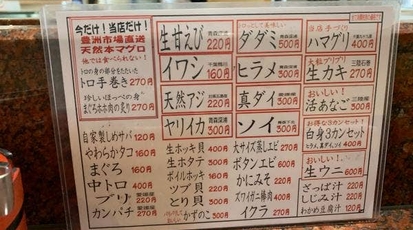 今だけ!当店だけ!
豊洲市場直送
天然本マグロ
他では食べられない!
トロの身の部分をたたいた
トロ手巻き 270円
珍しいほっぺの身
まぐろホホ肉の炙り 270円
自家製しめサバ 120円
やわらかタコ 160円
まぐろ 160円
中トロ 400円
ブリ 220円
カンパチ 270円
生甘えび 220円
イワシ 160円
天然アジ 220円
ヤリイカ 300円
生ホッキ貝 400円
生ホタテ 300円
ボイルホッキ 160円
ツブ貝 300円
とり貝 300円
かずのこ 300円
ダダミ 500円
ヒラメ 300円
真ダイ 300円
ソイ 300円
大サイズ蒸しエビ 270円
ボタンエビ 600円
かにみそ 220円
ズワイガニ棒肉 400円
イクラ 270円
当店手づくり
ハマグリ 400円
大粒
生カキ 270円
おいしい!
活あなご 300円
お得な3カンセット!
白身3カンセット
ヒラメ、真ダイ、ソイ 400円
おいしい!
生ウニ 600円
さっぱ汁 220円
しじみ汁 220円
わかめ豆腐汁 120円